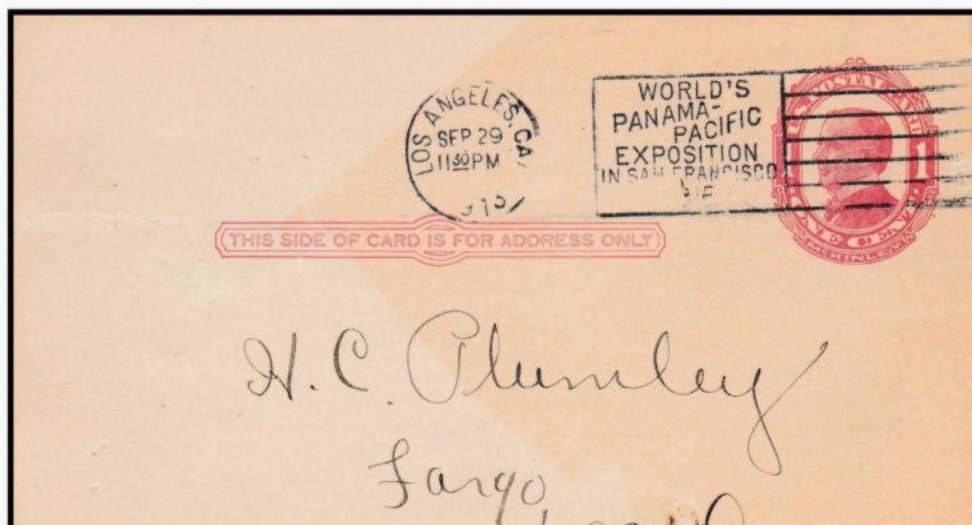 LOS ANGELES, CA.
SEP 29
11 30 PM
WORLD'S
PANAMA-
PACIFIC
EXPOSITION
IN SAN FRANCISCO
U.S. POSTAL CARD
1
ONE CENT
McKINLEY
THIS SIDE OF CARD IS FOR ADDRESS ONLY
H. C. Plumley
Fargo,